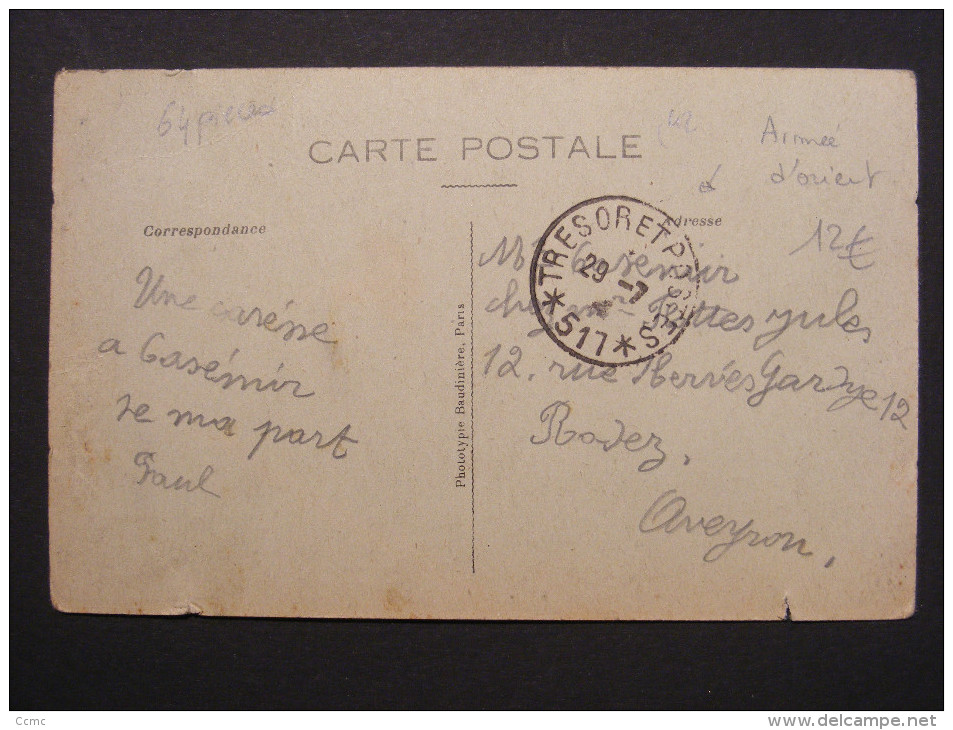 CARTE POSTALE
Armée
d'orient
12€
Correspondance
Adresse
TRESOR ET POSTES
29 -7
*517*
Une caresse
a Casémir
de ma part
Paul
Phototypie Baudinière, Paris
Casémir
chez Mr jules
12, rue
12
Rodez,
Aveyron,
Ccmc
www.delcampe.net